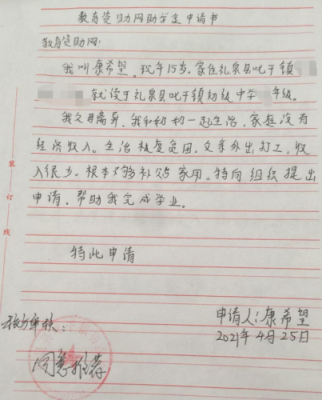 教育资助网助学生申请书
教育资助网：
我叫康希望，现年15岁。家住礼泉县叱干镇
就读于礼泉县叱干镇初级中学 年级。
我父母离异，我和奶奶一起生活，家庭没有
经济收入。生活极其贫困，父亲外出打工，收
入很少，根本不够补贴家用。特向组织提出
申请，帮助我完成学业。
特此申请
申请人：康希望
2021年4月25日
同意推荐
装
订
线